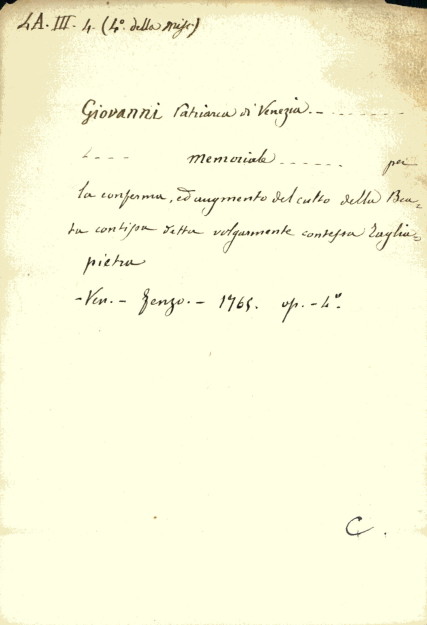 LA. III. 4. (4º. della Misc.)
Giovanni Patriarca di Venezia
memoriale per
la conferma, ed augmento del culto della Bea=
ta contissa detta volgarmente contessa Taglia=
pietra
- Ven. - Zenzo. - 1765. op. - 4º.
C.